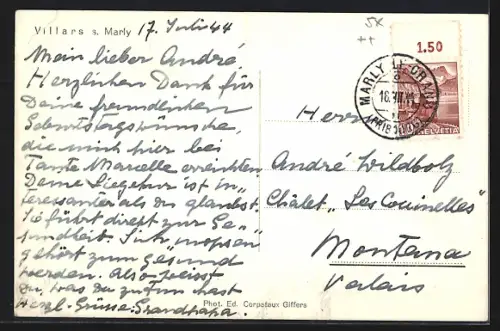 Villars s. Marly
17. Juli 44
Mein lieber André,
Herzlichen Dank für
Deine freundlichen
Geburtstagswünsche,
die mich hier bei
Tante Marcelle erreichten
Deine Liegekur ist in„
teressanter als du glaubst.
Sie führt direkt zur Ge„
sundheit. Sich „mopsen"
gehört zum gesund
werden. Also weisst
Du, was Du zu tun hast
Herzl. Grüsse. Grandpapa.
1.50
MARLY LE GRAND
(FRIBOURG)
HELVETIA
Herrn
André Wildbolz
Châlet „Les Couinelles"
Montana
Valais
Phot. Ed. Corpataux Giffers